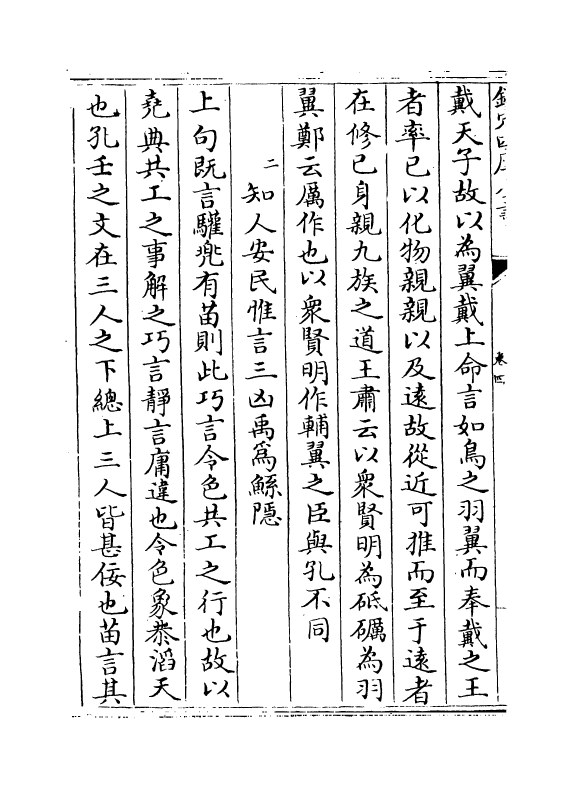 戴天子故以為翼戴上命言如鳥之羽翼而奉戴之王
者率已以化物親親以及遠故從近可推而至于遠者
在修已身親九族之道王肅云以衆賢明為砥礪為羽
翼鄭云厲作也以衆賢明作輔翼之臣與孔不同
二知人安民惟言三凶禹為鯀隱
上句既言驩兜有苗則此巧言令色共工之行也故以
堯典共工之事解之巧言靜言庸違也令色象恭滔天
也孔壬之文在三人之下總上三人皆甚佞也苗言其
卷四